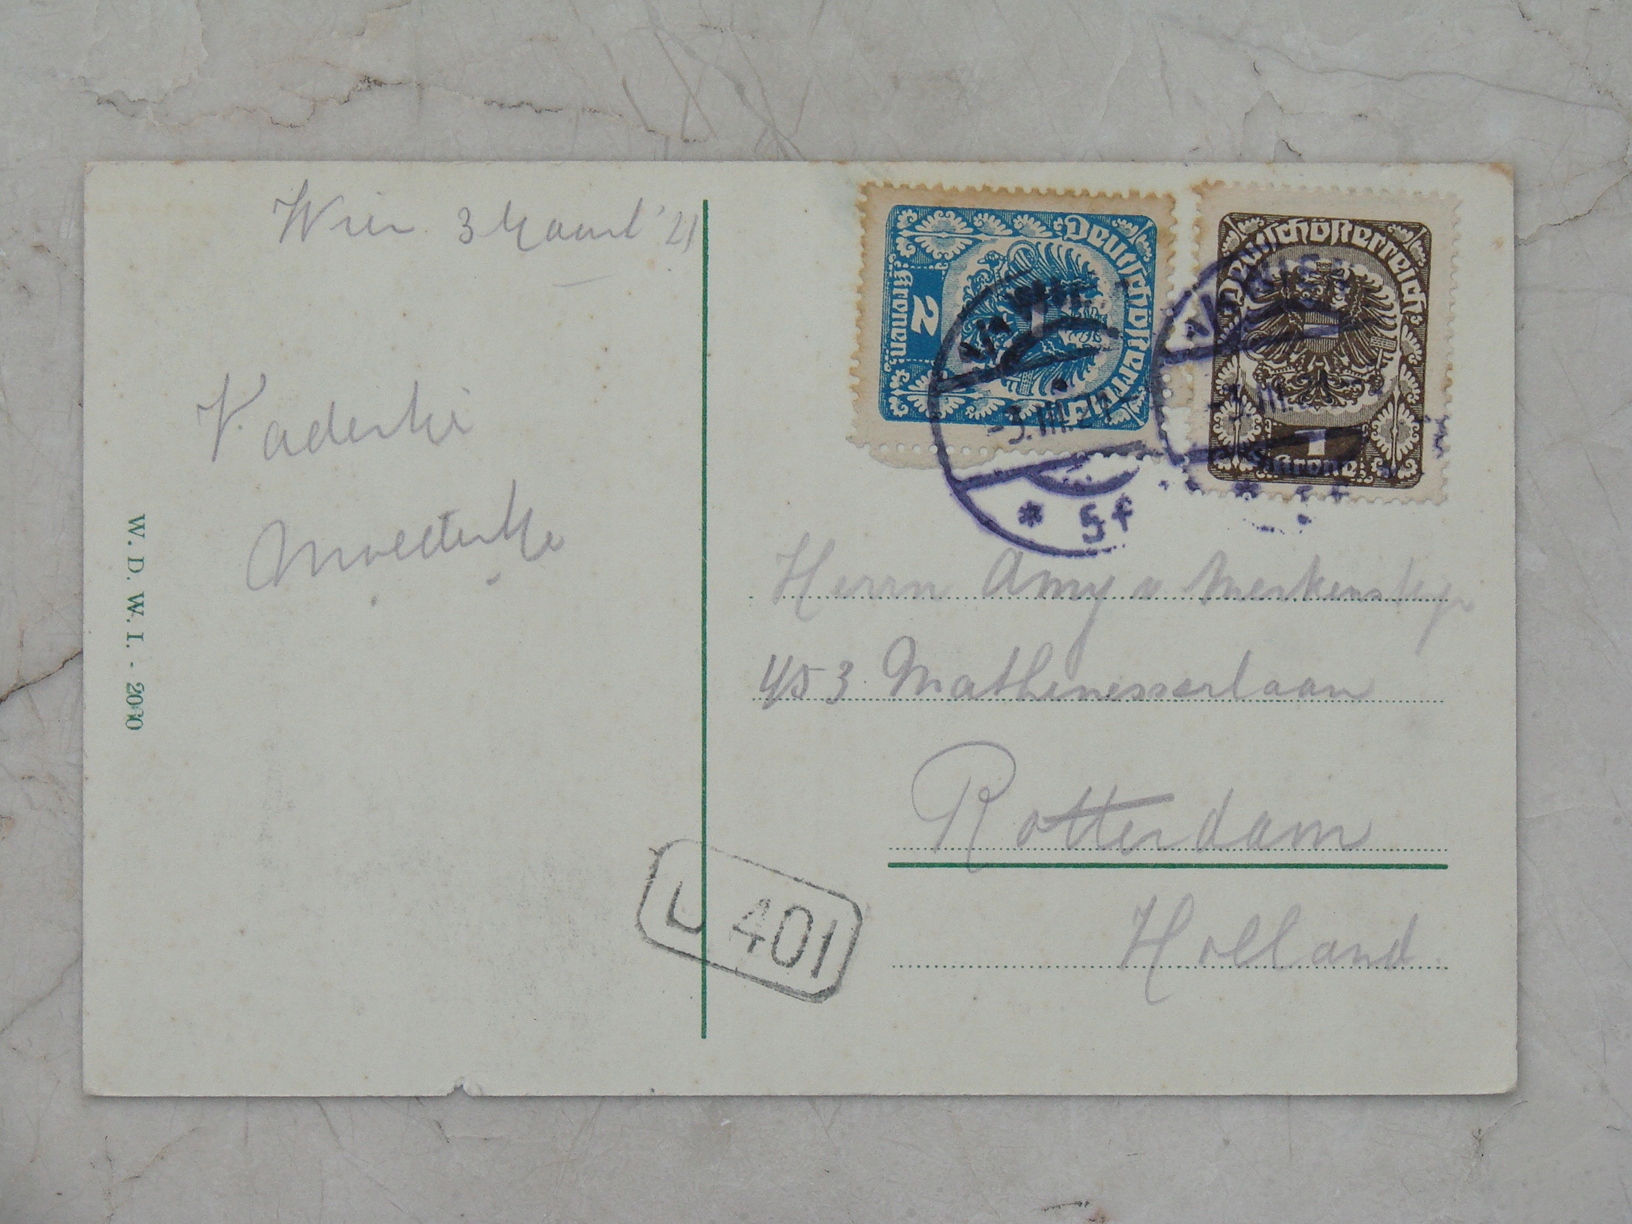 Wien 3 Maart '21
Vadertje
Moedertje
W. D. W. I. - 2030
Deutschösterreich
2
Kronen
Deutschösterreich
1
Krone
WIEN
-3.III.21
* 5f
-3.III.
Herrn Amy v Merkensteyn
453 Mathenesserlaan
Rotterdam
Holland
L 401